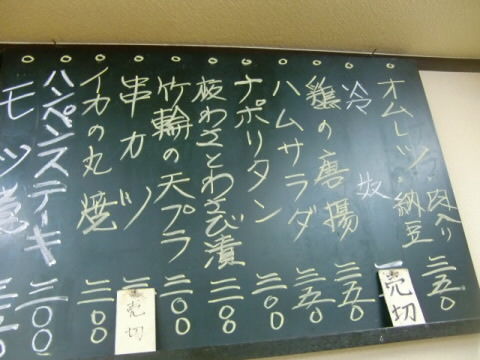 オムレツ 肉入り 納豆 三五〇
冷奴 売切
鶏の唐揚 三五〇
ハムサラダ 三五〇
ナポリタン 三〇〇
板わさとわさび漬 三〇〇
竹輪の天プラ 三〇〇
串カツ 売切
イカの丸焼 三〇〇
ハンペンステーキ 三〇〇
モツ煮